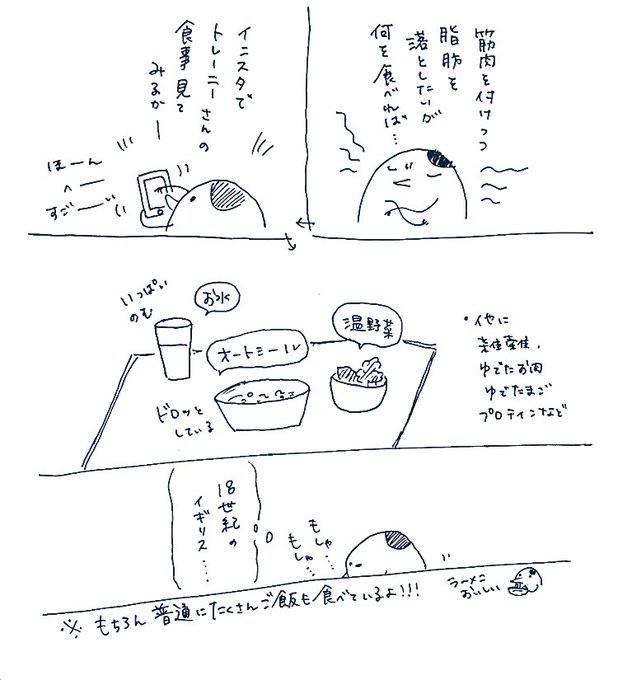 筋肉を付けつつ
脂肪を
落としたいが
何を食べれば…
インスタで
トレーニーさんの
食事見て
みるかー
ほーん
へー
すごーい
いっぱい
のむ
お水
オートミール
温野菜
ドロッと
している
・他に
雑穀、
ゆでたお肉
ゆでたまご
プロテインなど
18世紀の
イギリス……
もしゃ…
もしゃ…
ラーメン
おいしい
※もちろん普通にたくさんご飯も食べているよ!!!